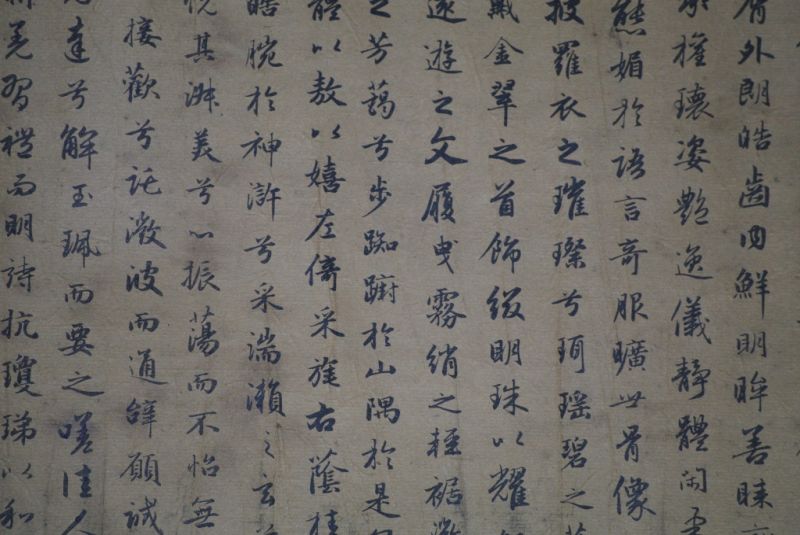 脣外朗皓齒內鮮明眸善睞
權瓌姿艷逸儀靜體閑
態媚於語言奇服曠世骨像
披羅衣之璀璨兮珥瑤碧之
戴金翠之首飾綴明珠以耀
遠遊之文履曳霧綃之輕裾
之芳藹兮步踟躕於山隅於是
體以敖以嬉左倚采旄右蔭桂
皓腕於神滸兮采湍瀨之玄
悅其淑美兮心振蕩而不怡無
接歡兮託微波而通辭願誠
達兮解玉珮而要之嗟佳人
羌習禮而明詩抗瓊珶以和